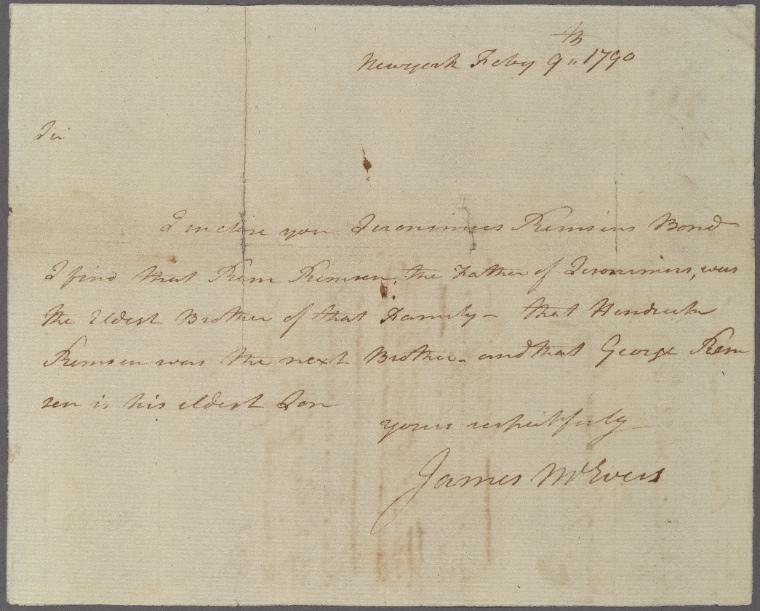 Newyork Feby 9th 1790
Sir
I inclose you Jeronimus Remsens Bond
I find that Rem Remsen, the Father of Jeronimus, was
the Eldest Brother of that Family - that Hendrick
Remsen was the next Brother - and that George Rem
sen is his eldest Son
yours respectfully
James McEvers